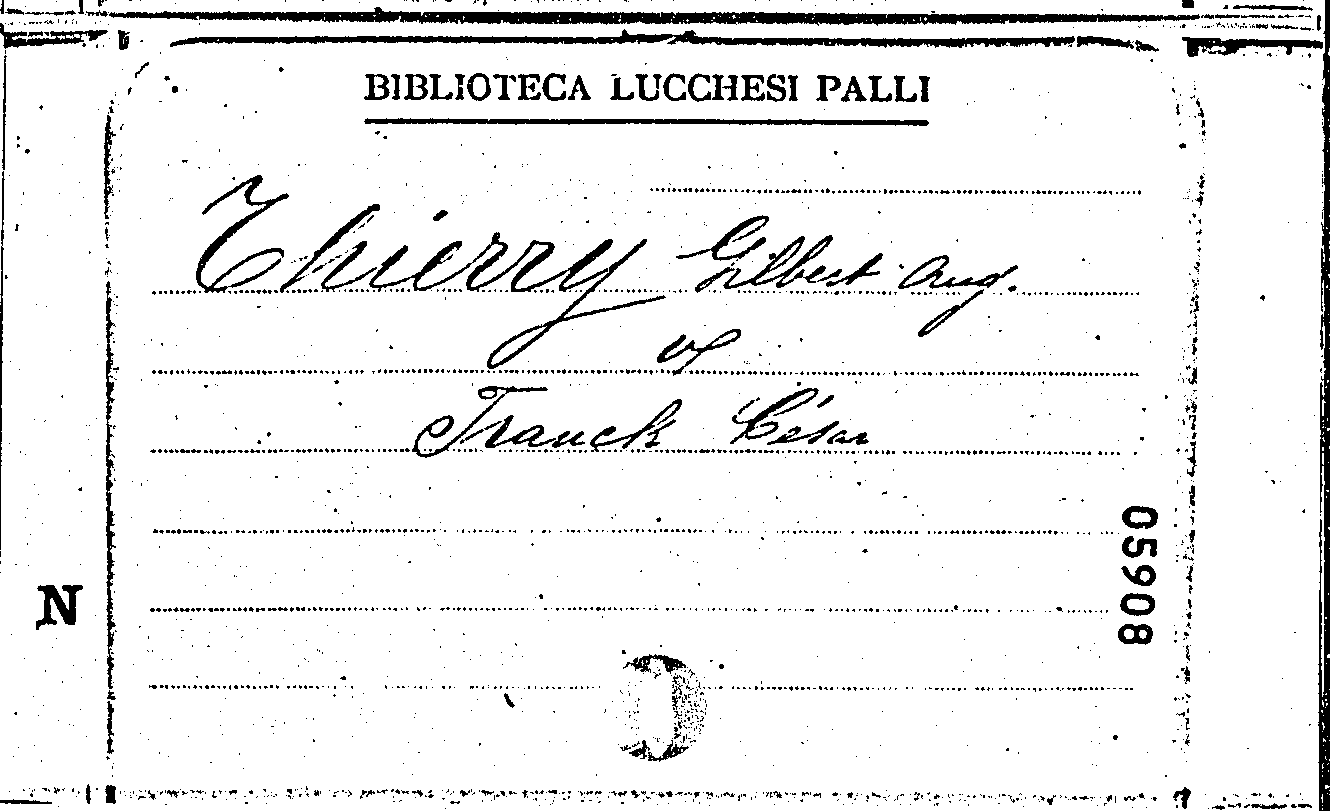 BIBLIOTECA LUCCHESI PALLI
Thierry Gilbert Aug.
Franck César
05908
N